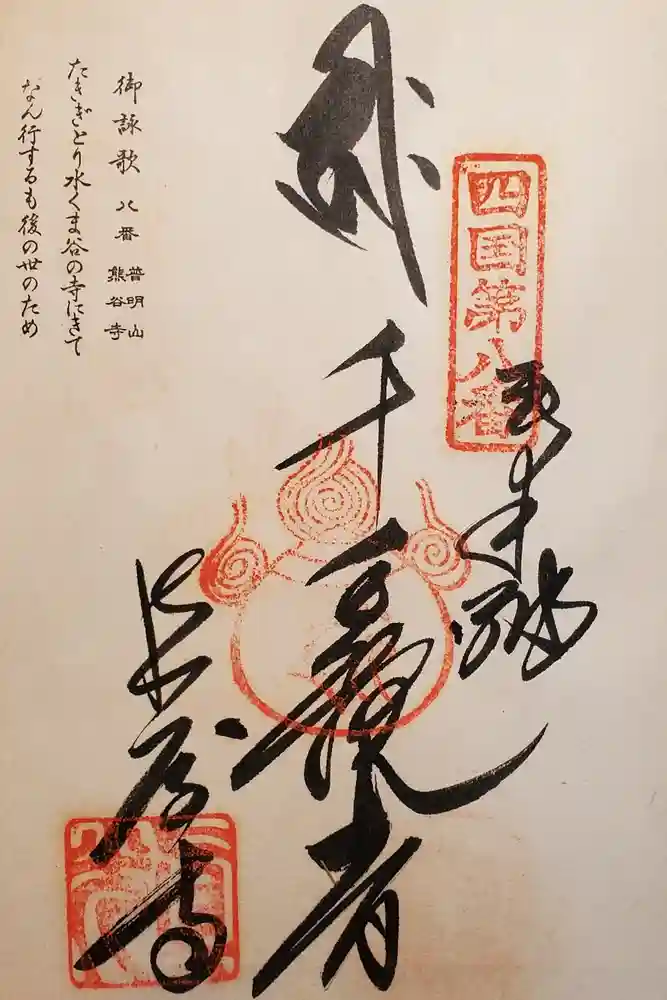 四国第八番
千手観音
熊谷寺
御詠歌 八番 普明山 熊谷寺
たきぎとり水くま谷の寺にきて
なん行するも後の世のため